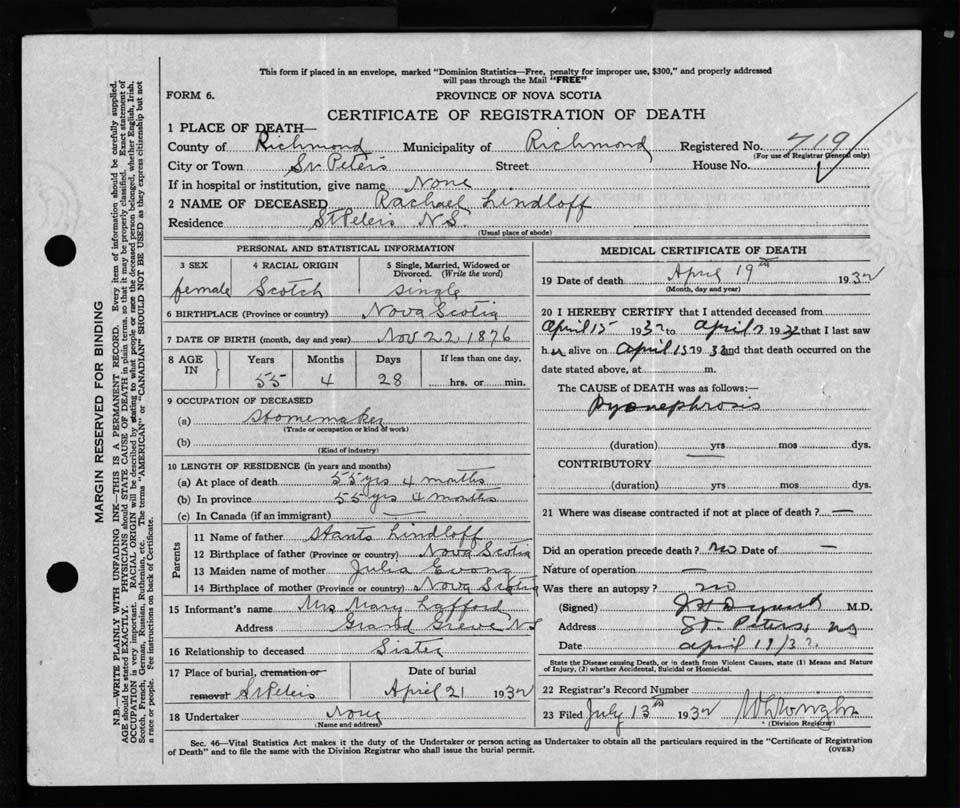 This form if placed in an envelope, marked "Dominion Statistics—Free, penalty for improper use, $300," and properly addressed
will pass through the Mail "FREE"
FORM 6.
PROVINCE OF NOVA SCOTIA
CERTIFICATE OF REGISTRATION OF DEATH
1 PLACE OF DEATH—
County of Richmond Municipality of Richmond Registered No. 719
(For use of Registrar General only)
City or Town St Peters Street House No.
If in hospital or institution, give name None
2 NAME OF DECEASED Rachael Lindloff
Residence St Peters N.S.
(Usual place of abode)
PERSONAL AND STATISTICAL INFORMATION
3 SEX 4 RACIAL ORIGIN 5 Single, Married, Widowed or Divorced. (Write the word)
female Scotch single
6 BIRTHPLACE (Province or country) Nova Scotia
7 DATE OF BIRTH (month, day and year) Nov 22 1876
8 AGE IN Years Months Days If less than one day,
55 4 28 hrs. or min.
9 OCCUPATION OF DECEASED
(a) Homemaker
(Trade or occupation or kind of work)
(b)
(Kind of industry)
10 LENGTH OF RESIDENCE (in years and months)
(a) At place of death 55 yrs 4 months
(b) In province 55 yrs 4 months
(c) In Canada (if an immigrant) —
Parents
11 Name of father Lindloff
12 Birthplace of father (Province or country) Nova Scotia
13 Maiden name of mother Julia
14 Birthplace of mother (Province or country) Nova Scotia
15 Informant's name Mrs Mary Lafford
Address Grand Greve NS
16 Relationship to deceased Sister
17 Place of burial, cremation or removal St Peters Date of burial April 21 1932
18 Undertaker None
(Name and address)
MEDICAL CERTIFICATE OF DEATH
19 Date of death April 19th 1932
(Month, day and year)
20 I HEREBY CERTIFY that I attended deceased from
April 15 1932 to April 1932 that I last saw
her alive on April 15 1932 and that death occurred on the
date stated above, at m.
The CAUSE OF DEATH was as follows:—
Pyonephrosis
(duration) yrs mos dys.
CONTRIBUTORY —
(duration) yrs mos dys.
21 Where was disease contracted if not at place of death? —
Did an operation precede death? no Date of —
Nature of operation —
Was there an autopsy? no
(Signed) M.D.
Address St. Peters, NS
Date April 19/32
State the Disease causing Death, or in death from Violent Causes, state (1) Means and Nature
of Injury, (2) whether Accidental, Suicidal or Homicidal.
22 Registrar's Record Number
23 Filed July 13th 1932
(Division Registrar)
Sec. 46—Vital Statistics Act makes it the duty of the Undertaker or person acting as Undertaker to obtain all the particulars required in the "Certificate of Registration
of Death" and to file the same with the Division Registrar who shall issue the burial permit.
(OVER)
MARGIN RESERVED FOR BINDING
N.B.—WRITE PLAINLY WITH UNFADING INK—THIS IS A PERMANENT RECORD. Every item of information should be carefully supplied.
AGE should be stated EXACTLY. PHYSICIANS should STATE CAUSE OF DEATH in plain terms, so that it may be properly classified. Exact statement of
OCCUPATION is very important. RACIAL ORIGIN will be described by stating to what people or race the deceased person belonged, whether English, Irish,
Scotch, French, German, Russian, Ruthenian, etc. The terms "AMERICAN" or "CANADIAN" SHOULD NOT BE USED as they express citizenship but not
a race or people. See instructions on back of Certificate.